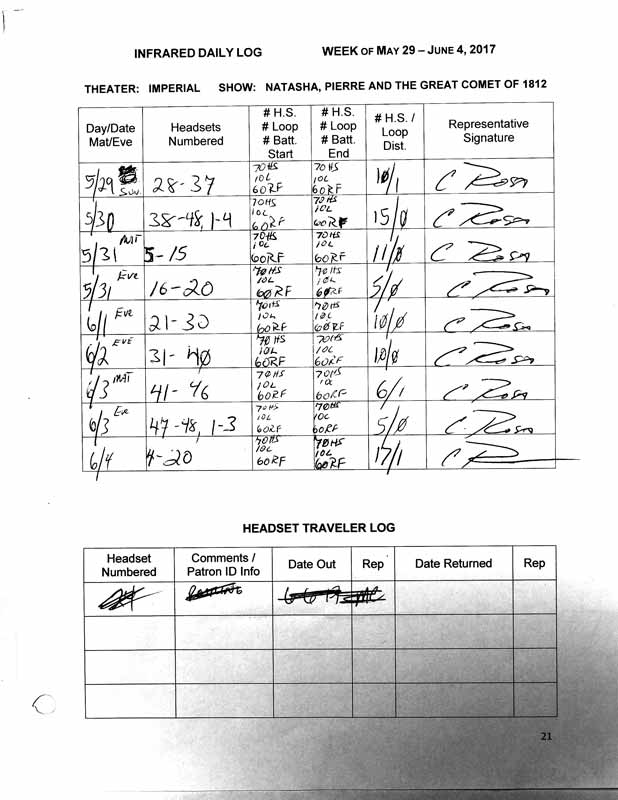 INFRARED DAILY LOG WEEK OF MAY 29 – JUNE 4, 2017
THEATER: IMPERIAL SHOW: NATASHA, PIERRE AND THE GREAT COMET OF 1812
Day/Date Mat/Eve | Headsets Numbered | # H.S. # Loop # Batt. Start | # H.S. # Loop # Batt. End | # H.S. / Loop Dist. | Representative Signature
5/29 Sun. | 28-37 | 70HS 10L 60RF | 70HS 10L 60RF | 10/1 | C Rosa
5/30 | 38-48, 1-4 | 70HS 10L 60RF | 70HS 10L 60RF | 15/0 | C Rosa
5/31 MAT | 5-15 | 70HS 10L 60RF | 70HS 10L 60RF | 11/0 | C Rosa
5/31 Eve | 16-20 | 70HS 10L 60RF | 70HS 10L 60RF | 5/0 | C Rosa
6/1 Eve | 21-30 | 70HS 10L 60RF | 70HS 10L 60RF | 10/0 | C Rosa
6/2 EVE | 31-40 | 70HS 10L 60RF | 70HS 10L 60RF | 10/0 | C Rosa
6/3 MAT | 41-46 | 70HS 10L 60RF | 70HS 10L 60RF | 6/1 | C Rosa
6/3 Eve | 47-48, 1-3 | 70HS 10L 60RF | 70HS 10L 60RF | 5/0 | C. Rosa
6/4 | 4-20 | 70HS 10L 60RF | 70HS 10L 60RF | 17/1 | C R
HEADSET TRAVELER LOG
Headset Numbered | Comments / Patron ID Info | Date Out | Rep | Date Returned | Rep
21